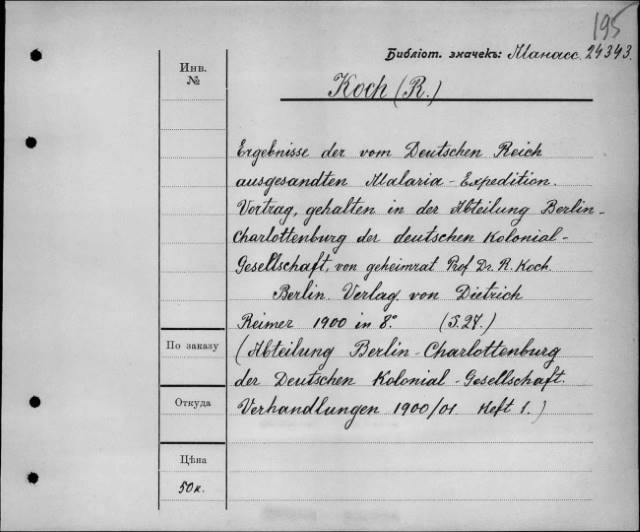 195
Библіот. значекъ: Манасс. 24343.
Инв.
№
Koch (R.)
Ergebnisse der vom Deutschen Reich
ausgesandten Malaria-Expedition.
Vortrag, gehalten in der Abteilung Berlin-
Charlottenburg der deutschen Kolonial-
Gesellschaft, von geheimrat Prof Dr. R. Koch.
Berlin. Verlag. von Dietrich
Reimer 1900 in 8.° (S.27.)
По заказу
(Abteilung Berlin-Charlottenburg
der Deutschen Kolonial-Gesellschaft.
Откуда
Verhandlungen 1900/01 Heft 1.)
Цѣна
50 к.